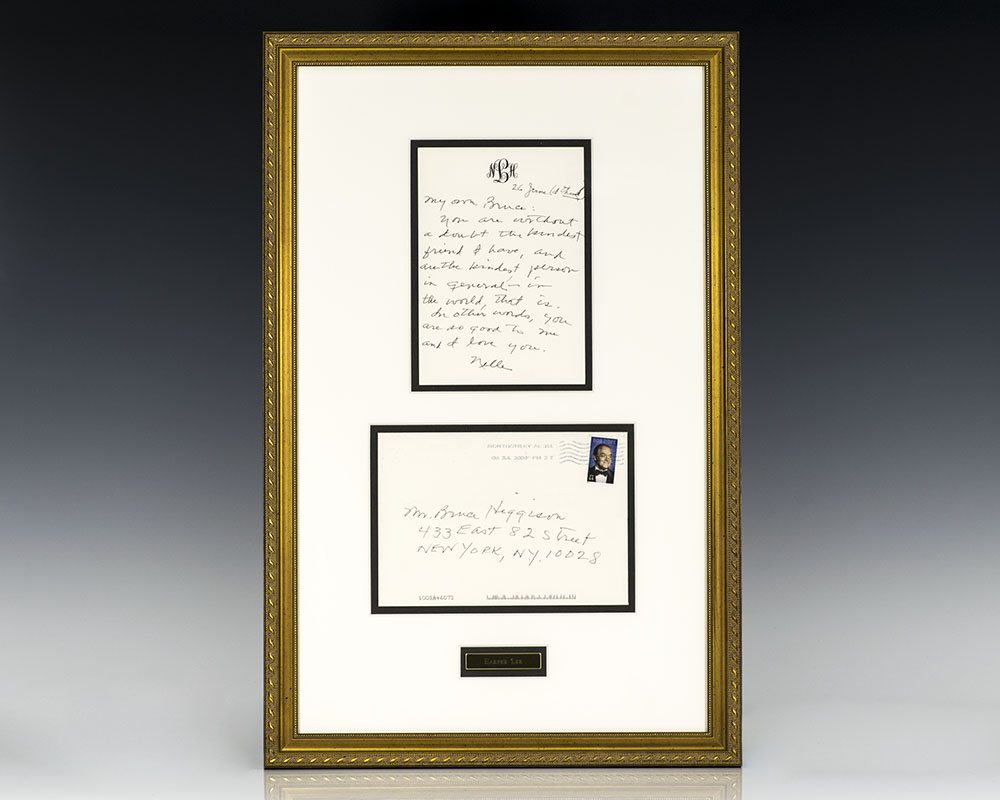 NLH
26 June
My own Bruce:
You are without
a doubt the kindest
friend I have, and
are the kindest person
in general – in
the world, that is.
In other words, you
are so good to me
and I love you.
Nelle
MONTGOMERY AL
PM 2 T
Mr. Bruce Higgison
433 East 82 Street
NEW YORK, NY. 10028
Harper Lee